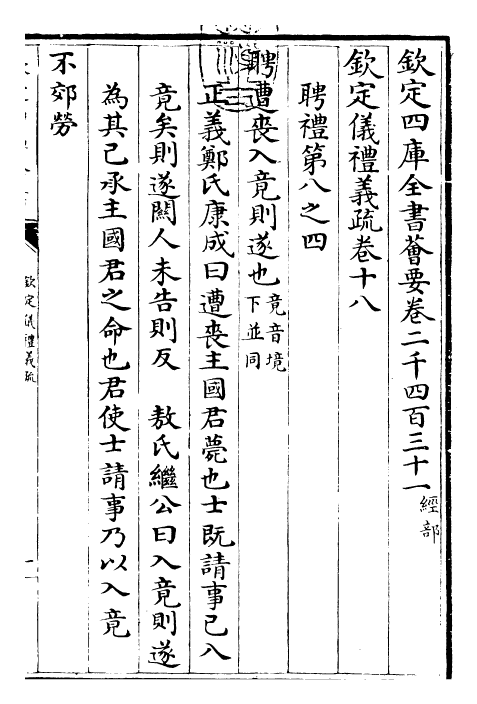 欽定四庫全書薈要卷二千四百三十一經部
欽定儀禮義疏卷十八
聘禮第八之四
聘遭喪入竟則遂也竟音境下並同
正義鄭氏康成曰遭喪主國君薨也士既請事已入
竟矣則遂闗人未告則反　敖氏繼公曰入竟則遂
為其已承主國君之命也君使士請事乃以入竟
不郊勞
欽定儀禮義疏